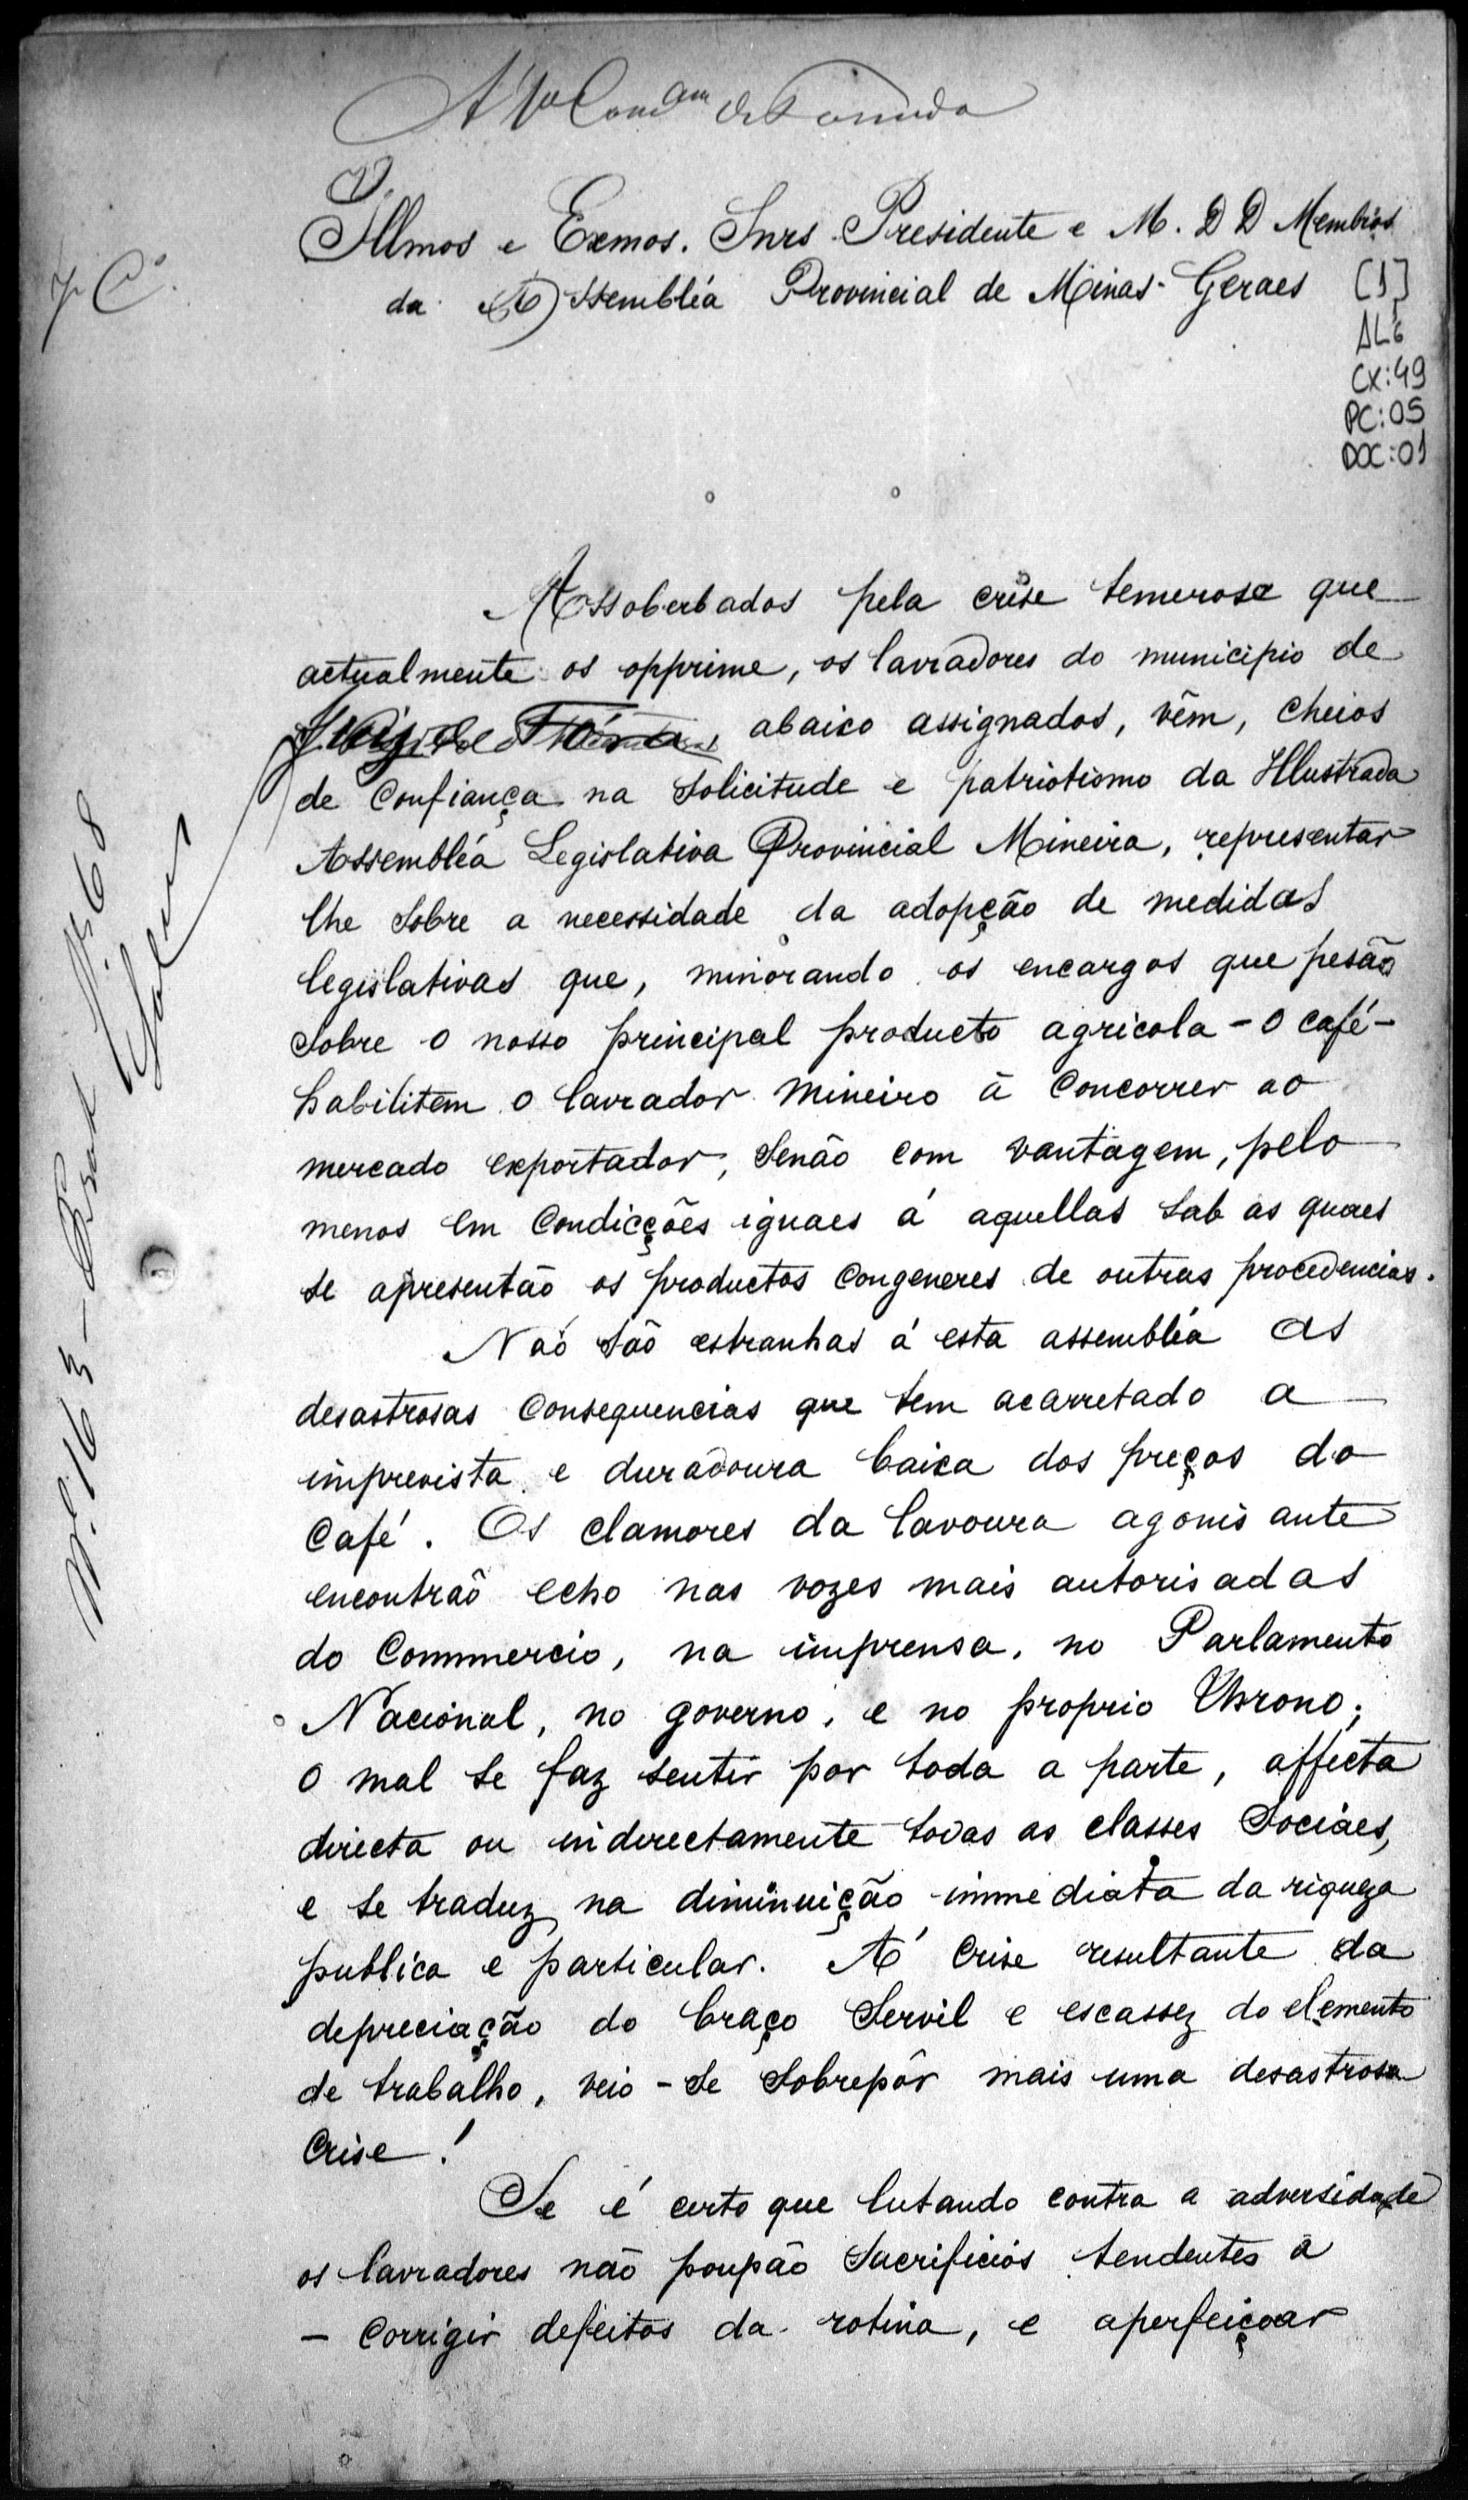 Illmos e Exmos. Snrs Presidente e M. D D Membros
da Assembléa Provincial de Minas-Geraes
[1]
AL6
CX:49
PC:05
DOC:01
Assoberbados pela crise temerosa que
actualmente os opprime, os lavradores do municipio de
Juiz de Fóra, abaixo assignados, vêm, cheios
de confiança na solicitude e patriotismo da Illustrada
Assembléa Legislativa Provincial Mineira, representar
lhe sobre a necessidade da adopção de medidas
legislativas que, minorando os encargos que pesão
sobre o nosso principal producto agricola - o café -
habilitem o lavrador mineiro á concorrer ao
mercado exportador, senão com vantagem, pelo
menos em condicções iguaes á aquellas sob as quaes
se apresentão os productos congeneres de outras procedencias.
Não são estranhas á esta assembléa as
desastrosas consequencias que tem acarretado a
imprevista e duradoura baixa dos preços do
café. Os clamores da lavoura agonisante
encontrão echo nas vozes mais autorisadas
do Commercio, na imprensa, no Parlamento
Nacional, no governo, e no proprio throno;
o mal se faz sentir por toda a parte, affecta
directa ou indirectamente todas as classes sociáes,
e se traduz na diminuição immediata da riqueza
publica e particular. Á crise resultante da
depreciação do braço servil e escassez do elemento
de trabalho, veio-se sobrepôr mais uma desastrosa
crise!
Se é certo que lutando contra a adversidade
os lavradores não poupão sacrificios tendentes á
- corrigir defeitos da rotina, e aperfeiçoar
Nº 163 -
Nº 68